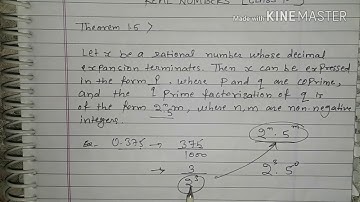 REAL NUMBERS
Made with
KINEMASTER
Theorem 1.5 >
Let x be a rational number whose decimal
expansion terminates. Then x can be expressed
in the form p/q, where p and q are coprime,
and the q prime factorization of q is
of the form 2ⁿ5ᵐ, where n, m are non-negative
integers.
Ex- 0.375 → 375/1000
2ⁿ.5ᵐ
→ 3/2³
2³.5⁰